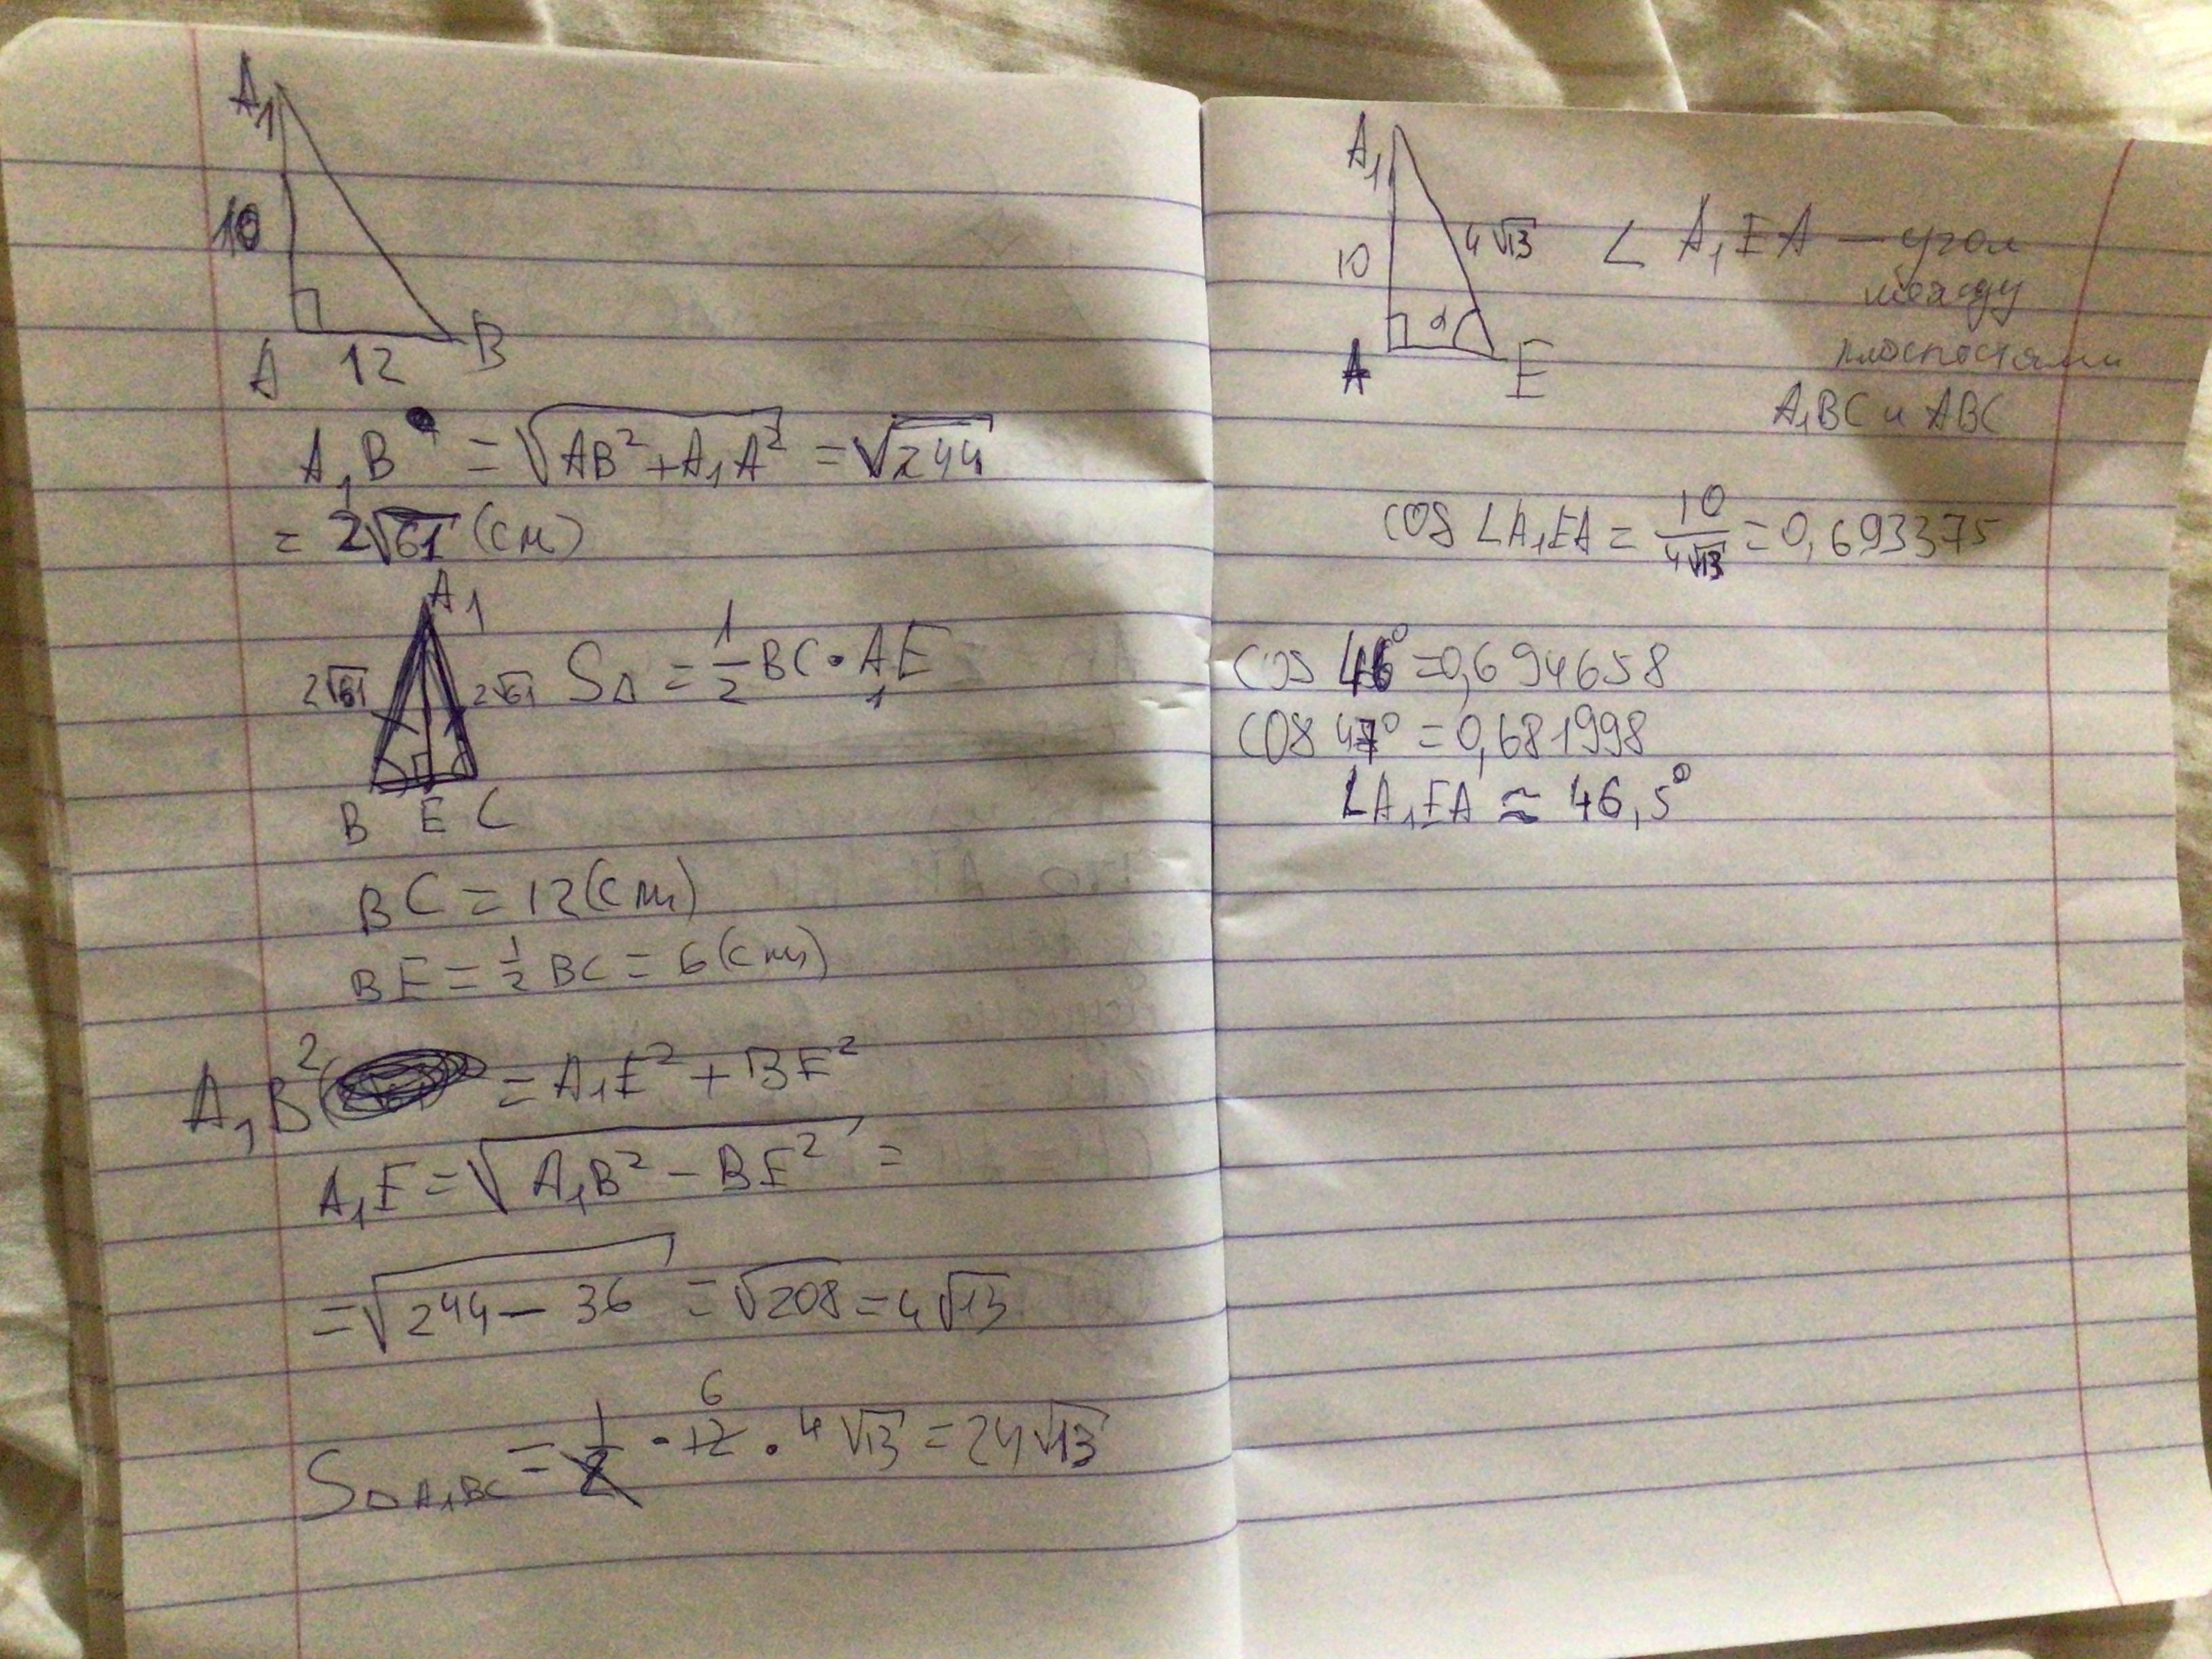 A₁
10
A 12 B
A₁B = √(AB² + A₁A²) = √244
= 2√61 (см)
A₁
2√61 2√61 S△ = 1/2 BC · A₁E
B E C
BC = 12 (см)
BE = 1/2 BC = 6 (см)
A₁B² = A₁E² + BE²
A₁E = √(A₁B² − BE²) =
= √(244 − 36) = √208 = 4√13
6
S△A₁BC = 1/2 · 12 · 4√13 = 24√13
A₁
10 4√13
α
A E
∠ A₁EA — угол
между
плоскостями
A₁BC и ABC
cos ∠A₁EA = 10/4√13 = 0,693375
cos 46° = 0,694658
cos 47° = 0,681998
∠A₁EA ≈ 46,5°